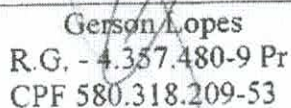 Gerson Lopes
R.G. - 4.357.480-9 Pr
CPF 580.318.209-53